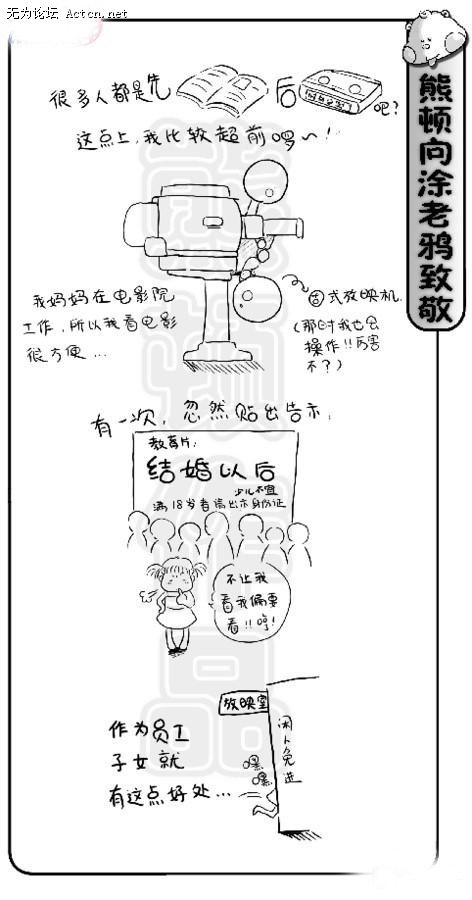 无为论坛 Actcn.net
熊顿向涂老鸦致敬
很多人都是先 后 吧?
这点上,我比较超前啰~!
我妈妈在电影院
工作,所以我看电影
很方便...
固式放映机
(那时我也会
操作!!厉害
不?)
有一次,忽然贴出告示:
教育片:
结婚以后
少儿不宜
满18岁者请出示身份证
不让我
看我偏要
看!!哼!
放映室
闲人免进
嘿
嘿
作为员工
子女就
有这点好处...